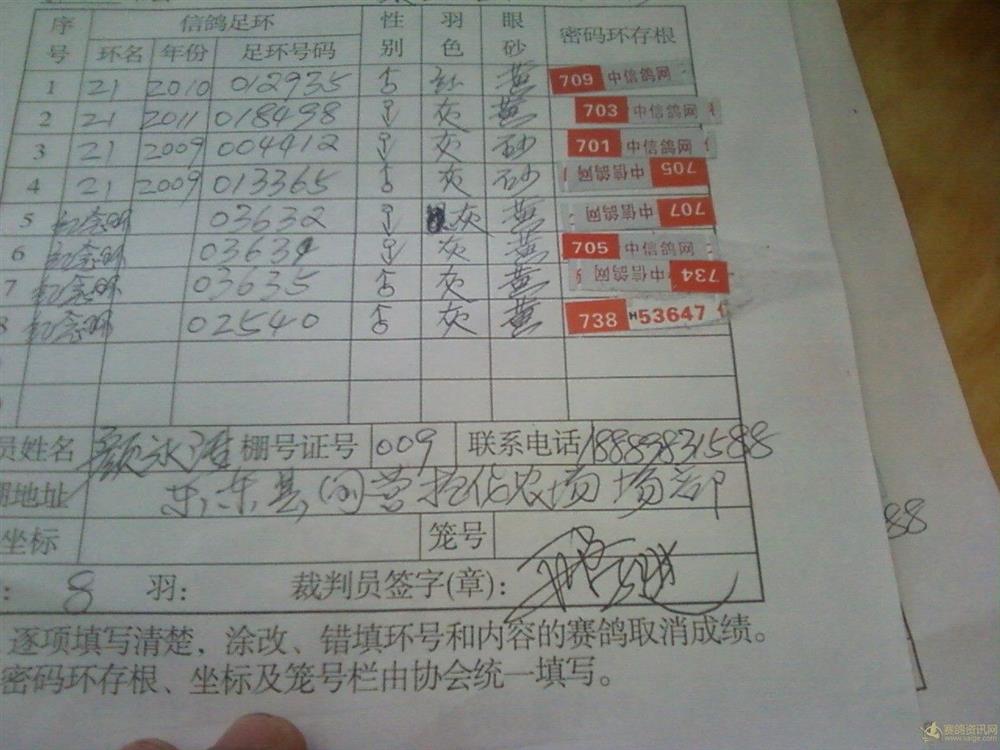 序号 信鸽足环 性别 羽色 眼砂 密码环存根
环名 年份 足环号码
1 21 2010 012935 ♂ 红 黄 709 中信鸽网
2 21 2011 018498 ♀ 灰 黄 703 中信鸽网
3 21 2009 004412 ♀ 灰 砂 701 中信鸽网
4 21 2009 013365 ♂ 灰 砂 705 中信鸽网
5 纪念环 03632 ♀ 灰 黄 707 中信鸽网
6 纪念环 03634 ♀ 灰 黄 705 中信鸽网
7 纪念环 03635 ♂ 灰 黄 734 中信鸽网
8 纪念环 02540 ♂ 灰 黄 738 H53647
员姓名 颜永 棚号证号 009 联系电话 18889831588
棚地址 乐东县 农场场部
坐标 笼号
: 8 羽: 裁判员签字(章):
88
逐项填写清楚,涂改、错填环号和内容的赛鸽取消成绩。
密码环存根、坐标及笼号栏由协会统一填写。
赛鸽资讯网
www.saige.com